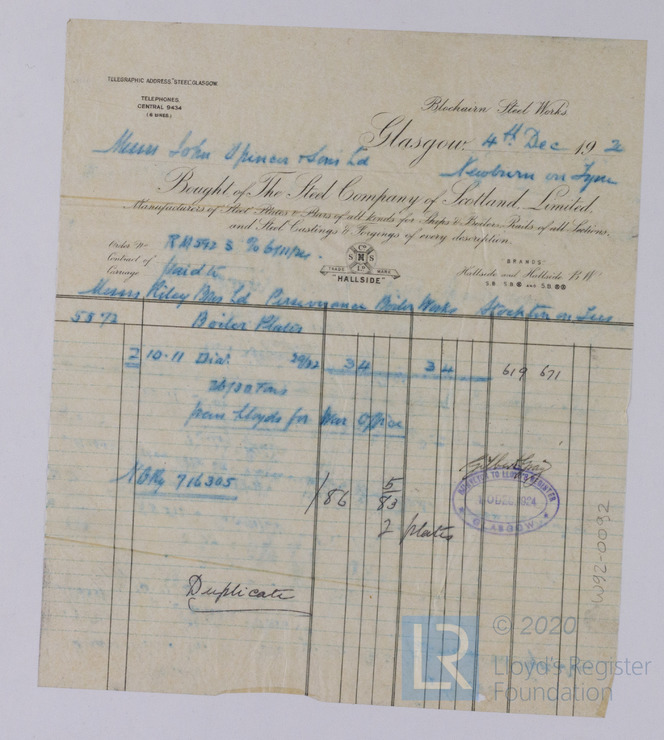 TELEGRAPHIC ADDRESS "STEEL", GLASGOW.
TELEPHONES.
CENTRAL 9434
(6 LINES.)
Blochairn Steel Works
Glasgow. 4th Dec 192
Messrs John Spencer & Sons Ld Newburn on Tyne
Bought of The Steel Company of Scotland, Limited,
Manufacturers of Steel Plates & Bars of all kinds for Ships & Boilers, Rails of all Sections,
and Steel Castings & Forgings of every description.
Order No RM 592 S
Contract of
Carriage paid to
THE S C S LD
TRADE MARK
"HALLSIDE"
BRANDS
Hallside and Hallside B W
S.B. S.B. and S.B.
Messrs Riley Bros Ld Perseverance Boiler Works Stockton on Tees
5572 Boiler Plates
2 10-11 Diar 29/32 34 34 619 671
26/30 Tons
from Lloyds for War Office
N B Ry 716305
186 5
83
2 plates
SURVEYOR TO LLOYD'S REGISTER
DEC 1924
GLASGOW
Duplicate
W92-0092
LR
© 2020
Lloyd's Register
Foundation